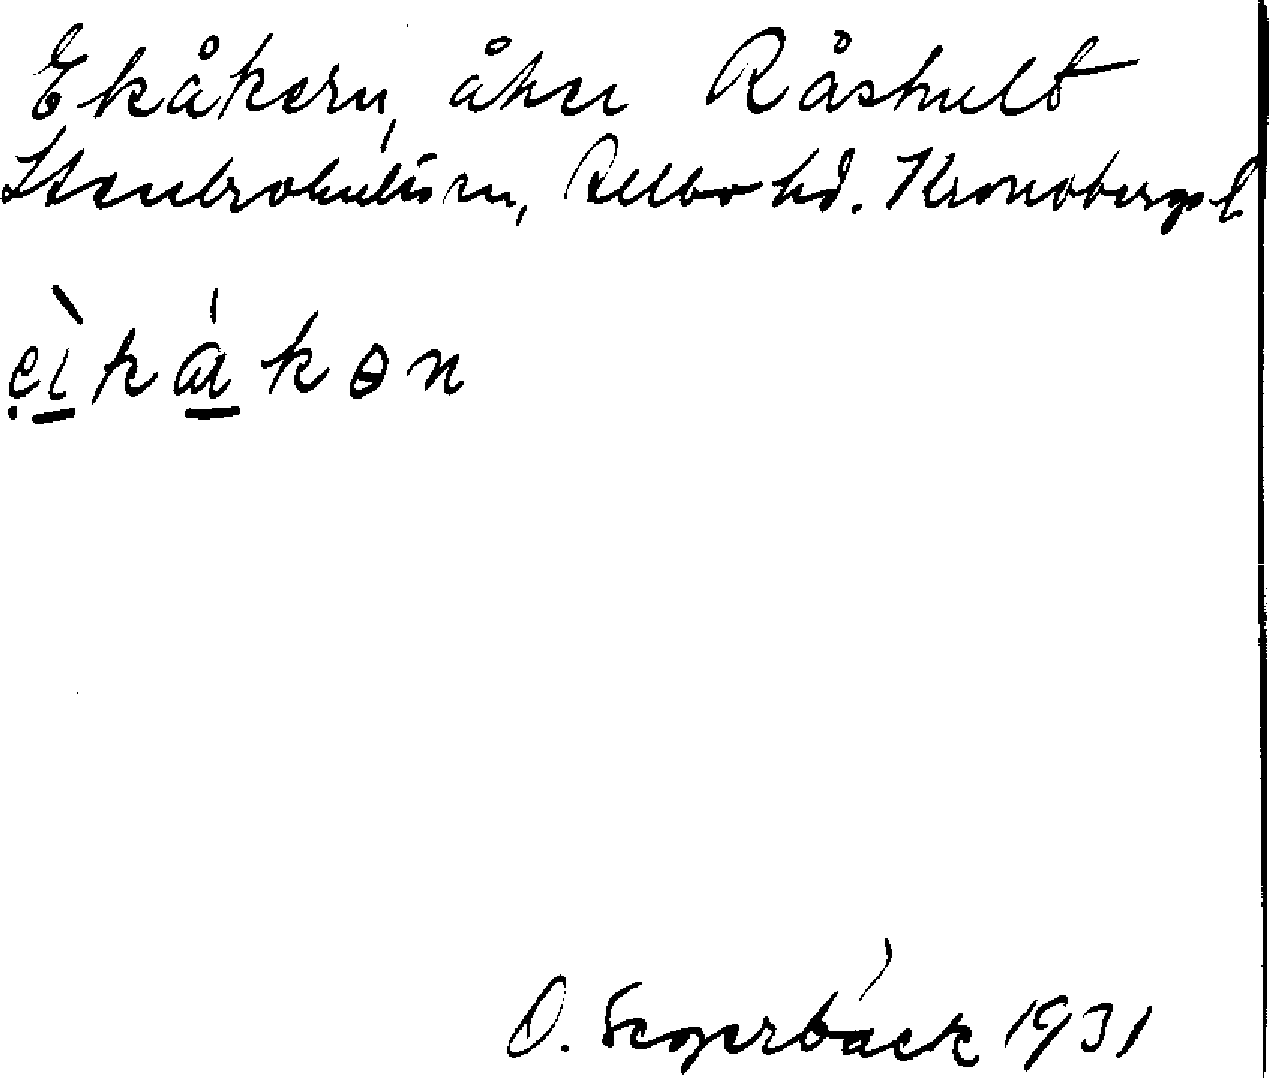 Ekåkern, åker Råshult
Stenbrohults sn, Allbo hd. Kronobergs l
O. Segerbäck 1931